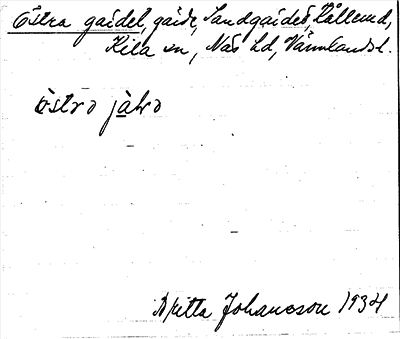 Östra gärdet, gärde, Sandgärdet, Kållerud,
Kila sn, Näs hd, Värmlands l.
östrə jàʟrə
Britta Johansson 1934